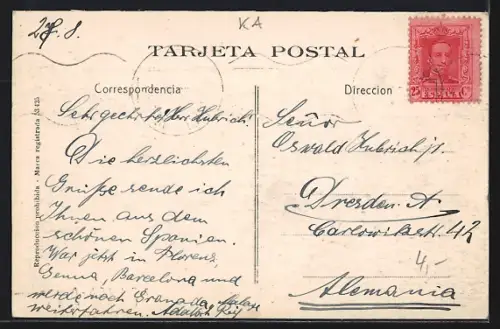 27. 8.
KA
TARJETA POSTAL
Correspondencia
Direccion
Sehr geehrter Herr Hubrich!
Die herzlichsten
Grüße sende ich
Ihnen aus dem
schönen Spanien.
War jetzt in Florenz,
Genua, Barcelona und
werde noch Granada, Malaga
weiterfahren.
Señor
Oswald Hubrich jr.
Dresden A
42
Alemania
4,-
25 ESPAÑA Cts
Reproduccion prohibida - Marca registrada